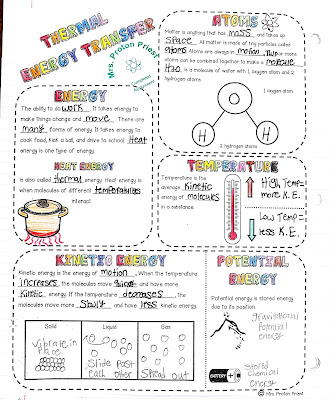 THERMAL
ENERGY TRANSFER
Mrs. Proton Priest
ATOMS
Matter is anything that has mass and takes up
space. All matter is made of tiny particles called
atoms. Atoms are always in motion. Two or more
atoms can be combined together to make a molecule.
H₂O is a molecule of water with 1 oxygen atom and 2
hydrogen atoms.
1 oxygen atom
O
H
H
2 hydrogen atoms
ENERGY
The ability to do work. It takes energy to
make things change and move. There are
many forms of energy. It takes energy to
cook food, kick a ball, and drive to school. Heat
energy is one type of energy.
HEAT ENERGY
is also called thermal energy. Heat energy is
when molecules of different temperatures
interact.
TEMPERATURE
Temperature is the
average kinetic
energy of molecules
in a substance.
High Temp=
more K.E.
Low Temp=
less K.E.
KINETIC ENERGY
Kinetic energy is the energy of motion. When the temperature
increases, the molecules move quicker and have more
kinetic energy. If the temperature decreases, the
molecules move more slowly and have less kinetic energy.
Solid
Liquid
Gas
Vibrate in
Place
Slide Past
each other
Spread out
POTENTIAL
ENERGY
Potential energy is stored energy
due to its position.
gravitational
Potential
energy
BATTERY
stored
Chemical
energy
©Mrs. Proton Priest